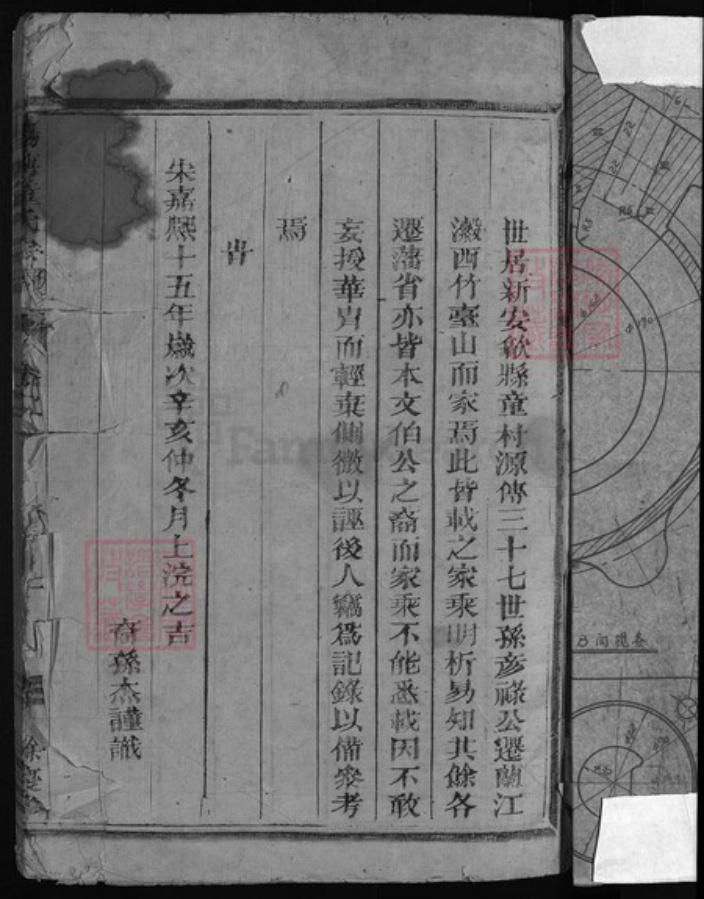 世居新安歙縣童村源傳三十七世孫彥祿公遷蘭江
瀫西竹臺山而家焉此皆載之家乘明析易知其餘各
遷藩省亦皆本文伯公之裔而家乘不能悉載因不敢
妄援華胄而輕棄側微以誣後人竊為記錄以備參考
焉
旹
宋嘉熙十五年歲次辛亥仲冬月上浣之吉
裔孫杰謹識
B向視